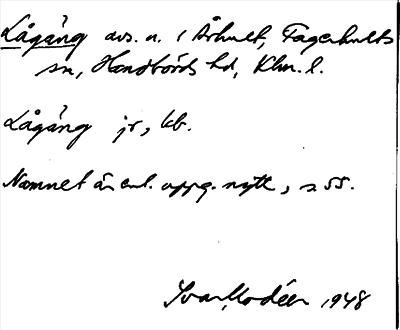 Lågäng avs. u. i Århult, Fagerhults
sn, Handbörds hd, Klm. l.
Lågäng jr, kb.
Namnet är enl. uppg. nytt, s 55.
Ivar Modéer 1948